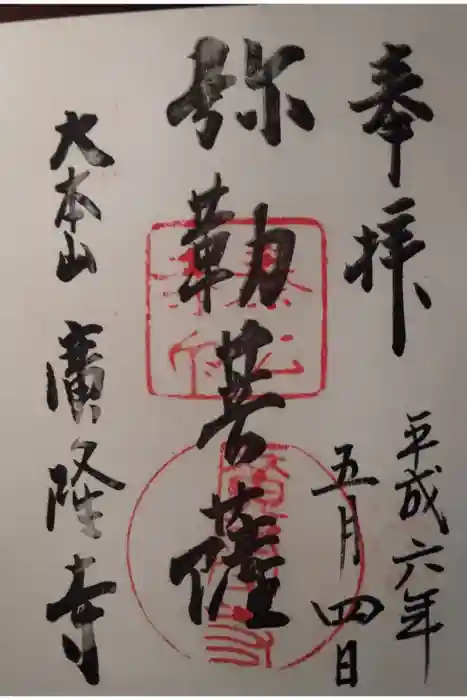 奉拝
平成六年
五月四日
弥勒菩薩
大本山 廣隆寺